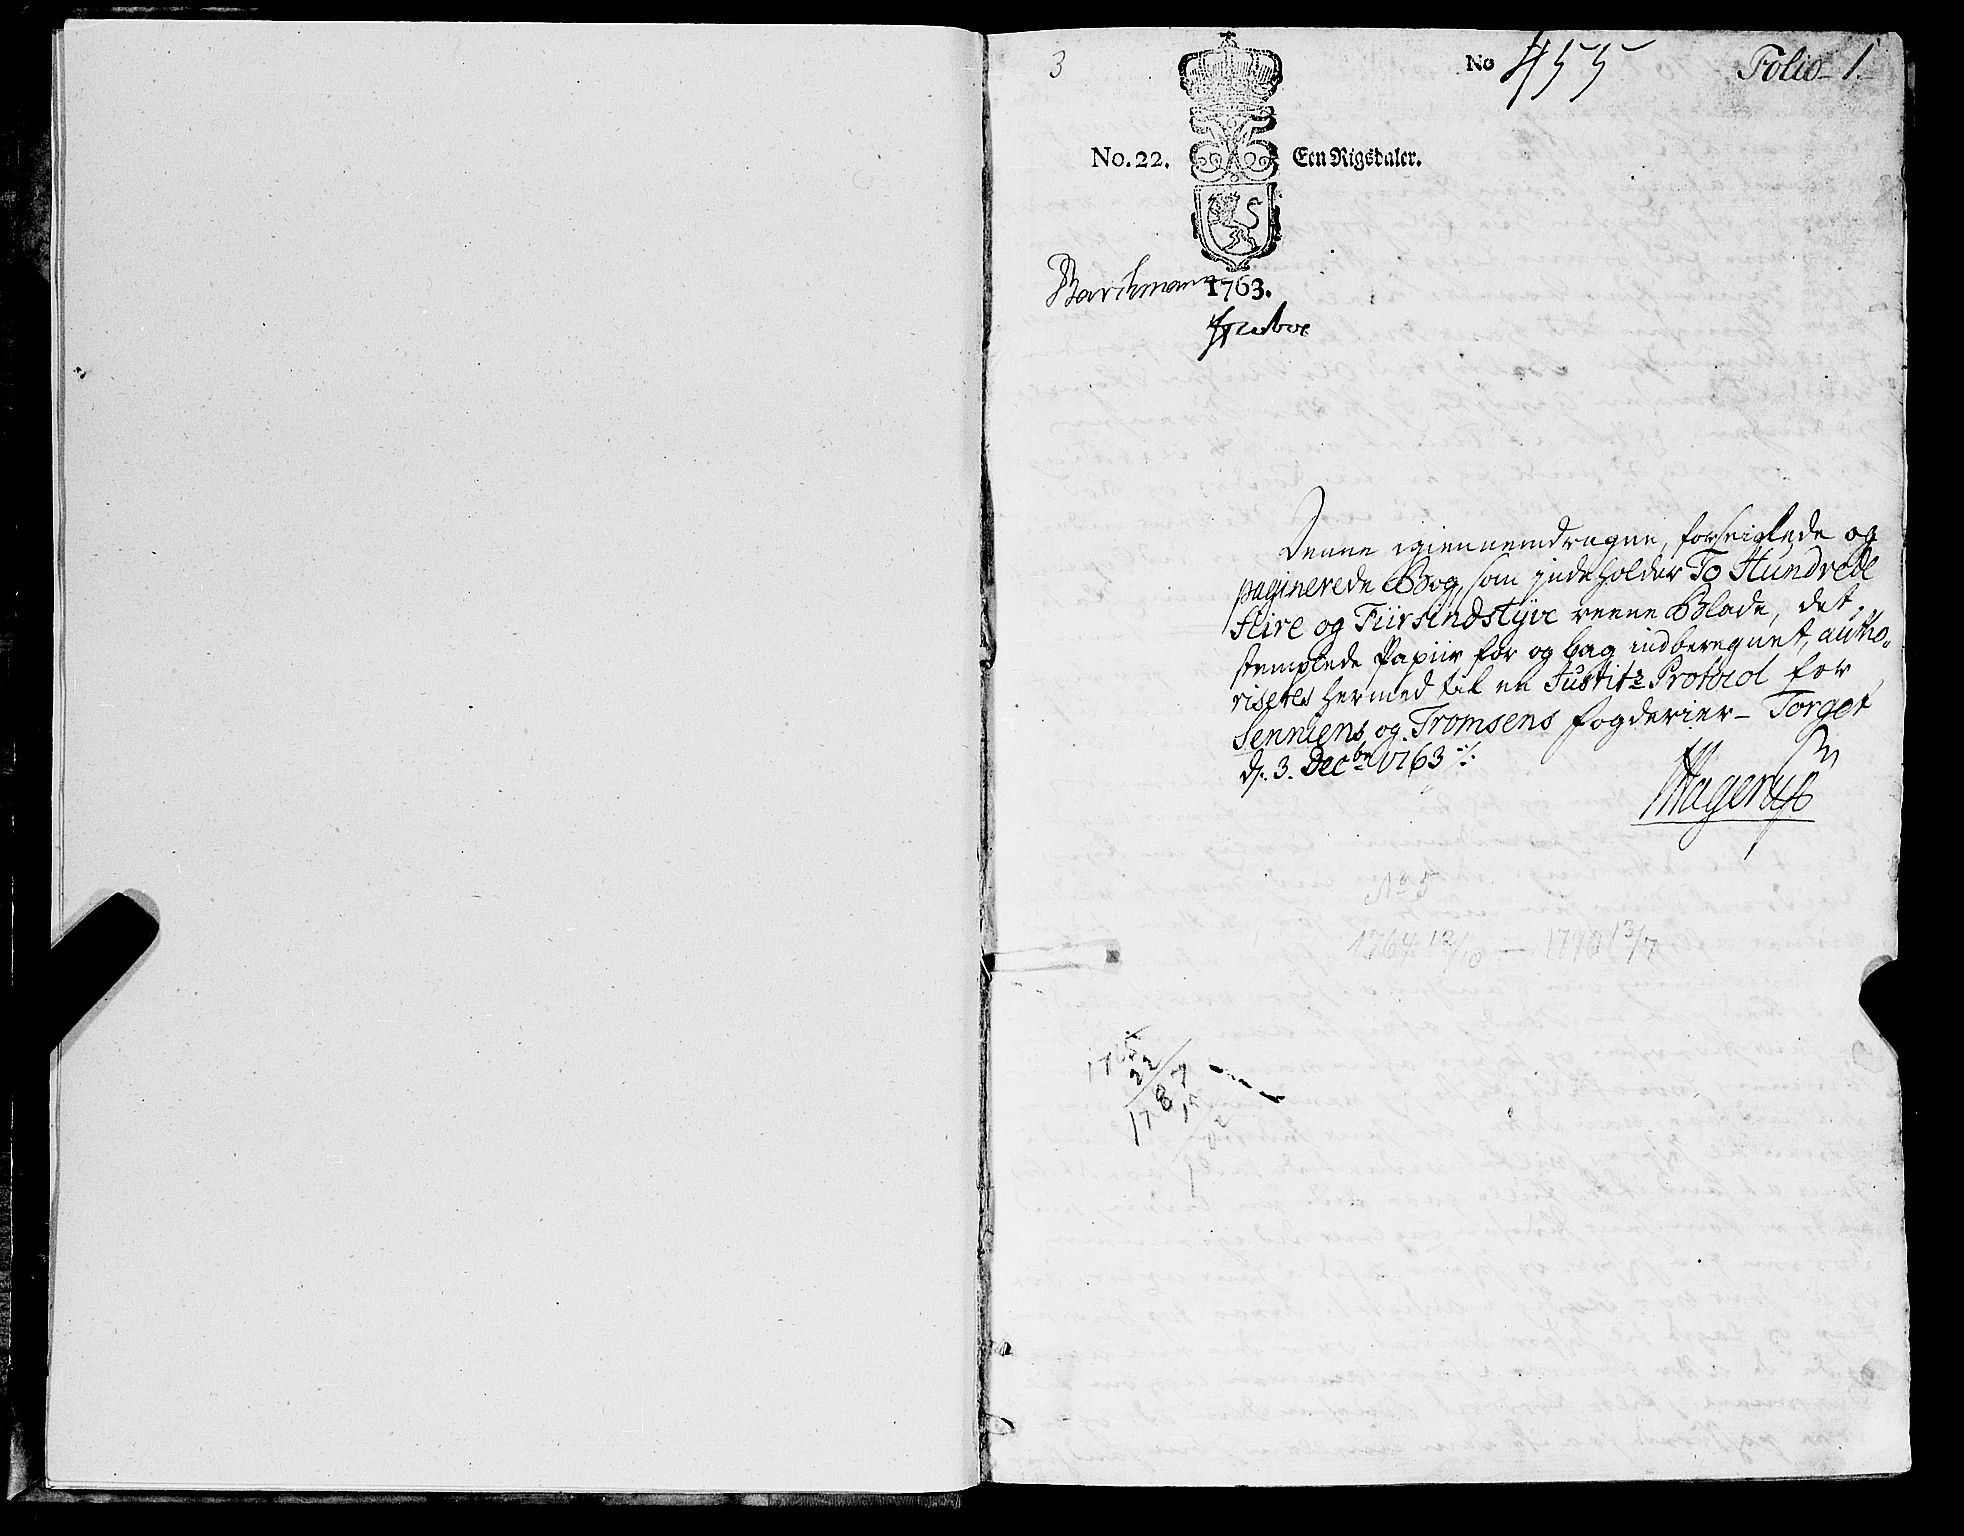 3
No 455
Folio 1.
No. 22. Een Rigsdaler.
Barchmann 1763.
Denne igiennemdragne, forseiglede og
paginerede Bog, som indeholder To Hundrede
Fiire og Fiirsindstyve reene Blade, det
stemplede Papiir for og bag indberegnet, autho-
riseres hermed til en Justitz Protocol for
Senniens og Tromsens fogderier - Torget
d. 3. Decbr 1763 ./.
Hagerup
No 5
1764 12/10 - 1770 13/7
1765
22
1787